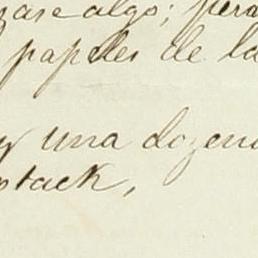 zase algo; pera
papeles de la
y una dozena
stack,